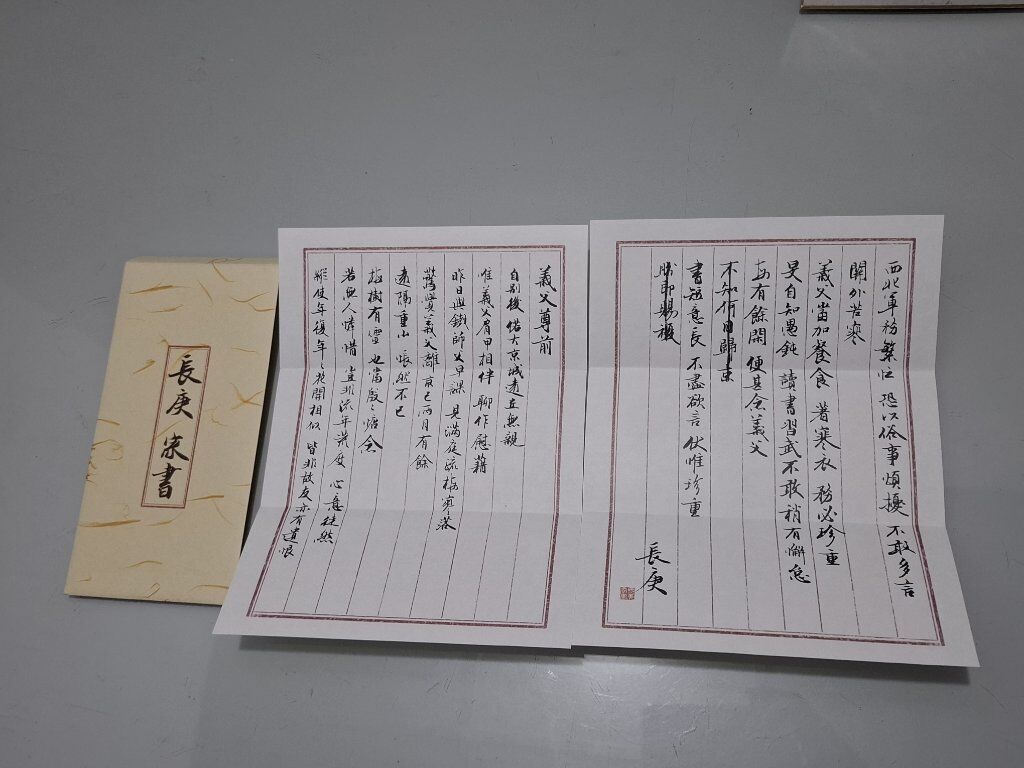 長庚家書
義父尊前
自別後 偌大京城遠近無親
唯義父肩甲相伴 聊作慰藉
昨日與鐵師父早課 見滿庭疏梅寥落
驚覺義父離京已兩月有餘
遠隔重山 悵然不已
梅樹有靈 也當殷〻 念
若無人憐惜 豈非流年荒度 心意徒然
縱使年復年〻花開相似 皆非故友 亦有遺恨
西北軍務繁忙 恐以俗事煩擾 不敢多言
關外苦寒
義父當加餐食 著寒衣 務必珍重
旻自知愚鈍 讀書習武不敢稍有懈怠
每有餘閑 便甚念義父
不知何日歸京
書短意長 不盡欲言 伏惟珍重
盼即賜覆
長庚